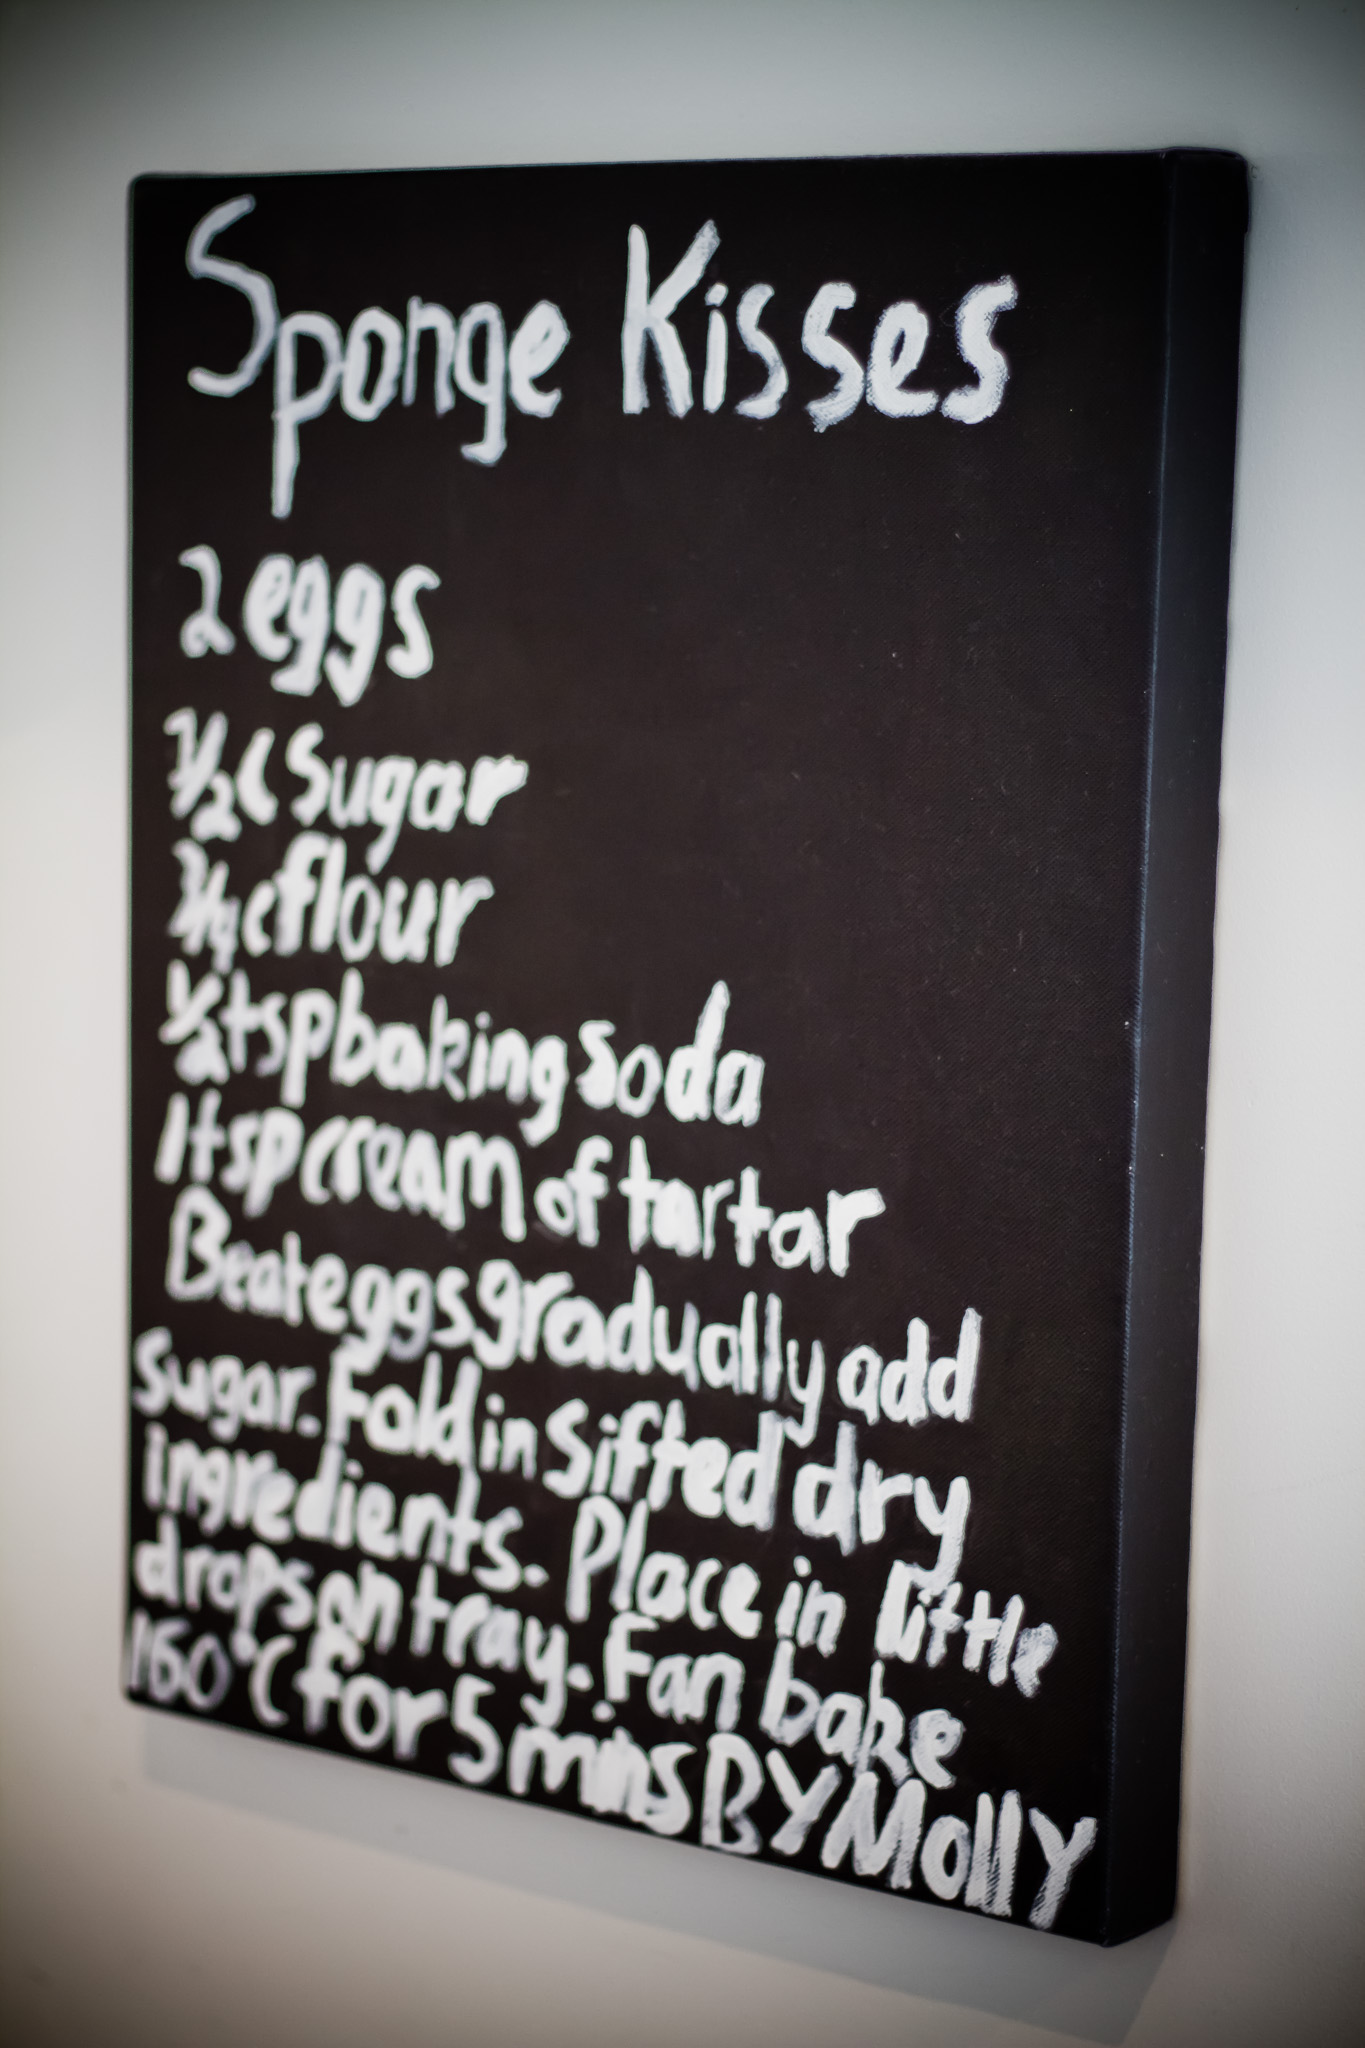 Sponge Kisses
2 eggs
1/2 c Sugar
3/4 c flour
1/2 tsp baking soda
1 tsp cream of tartar
Beat eggs gradually add
Sugar. Fold in Sifted dry
ingredients. Place in little
drops on tray. Fan bake
160°C for 5 mins BY Molly